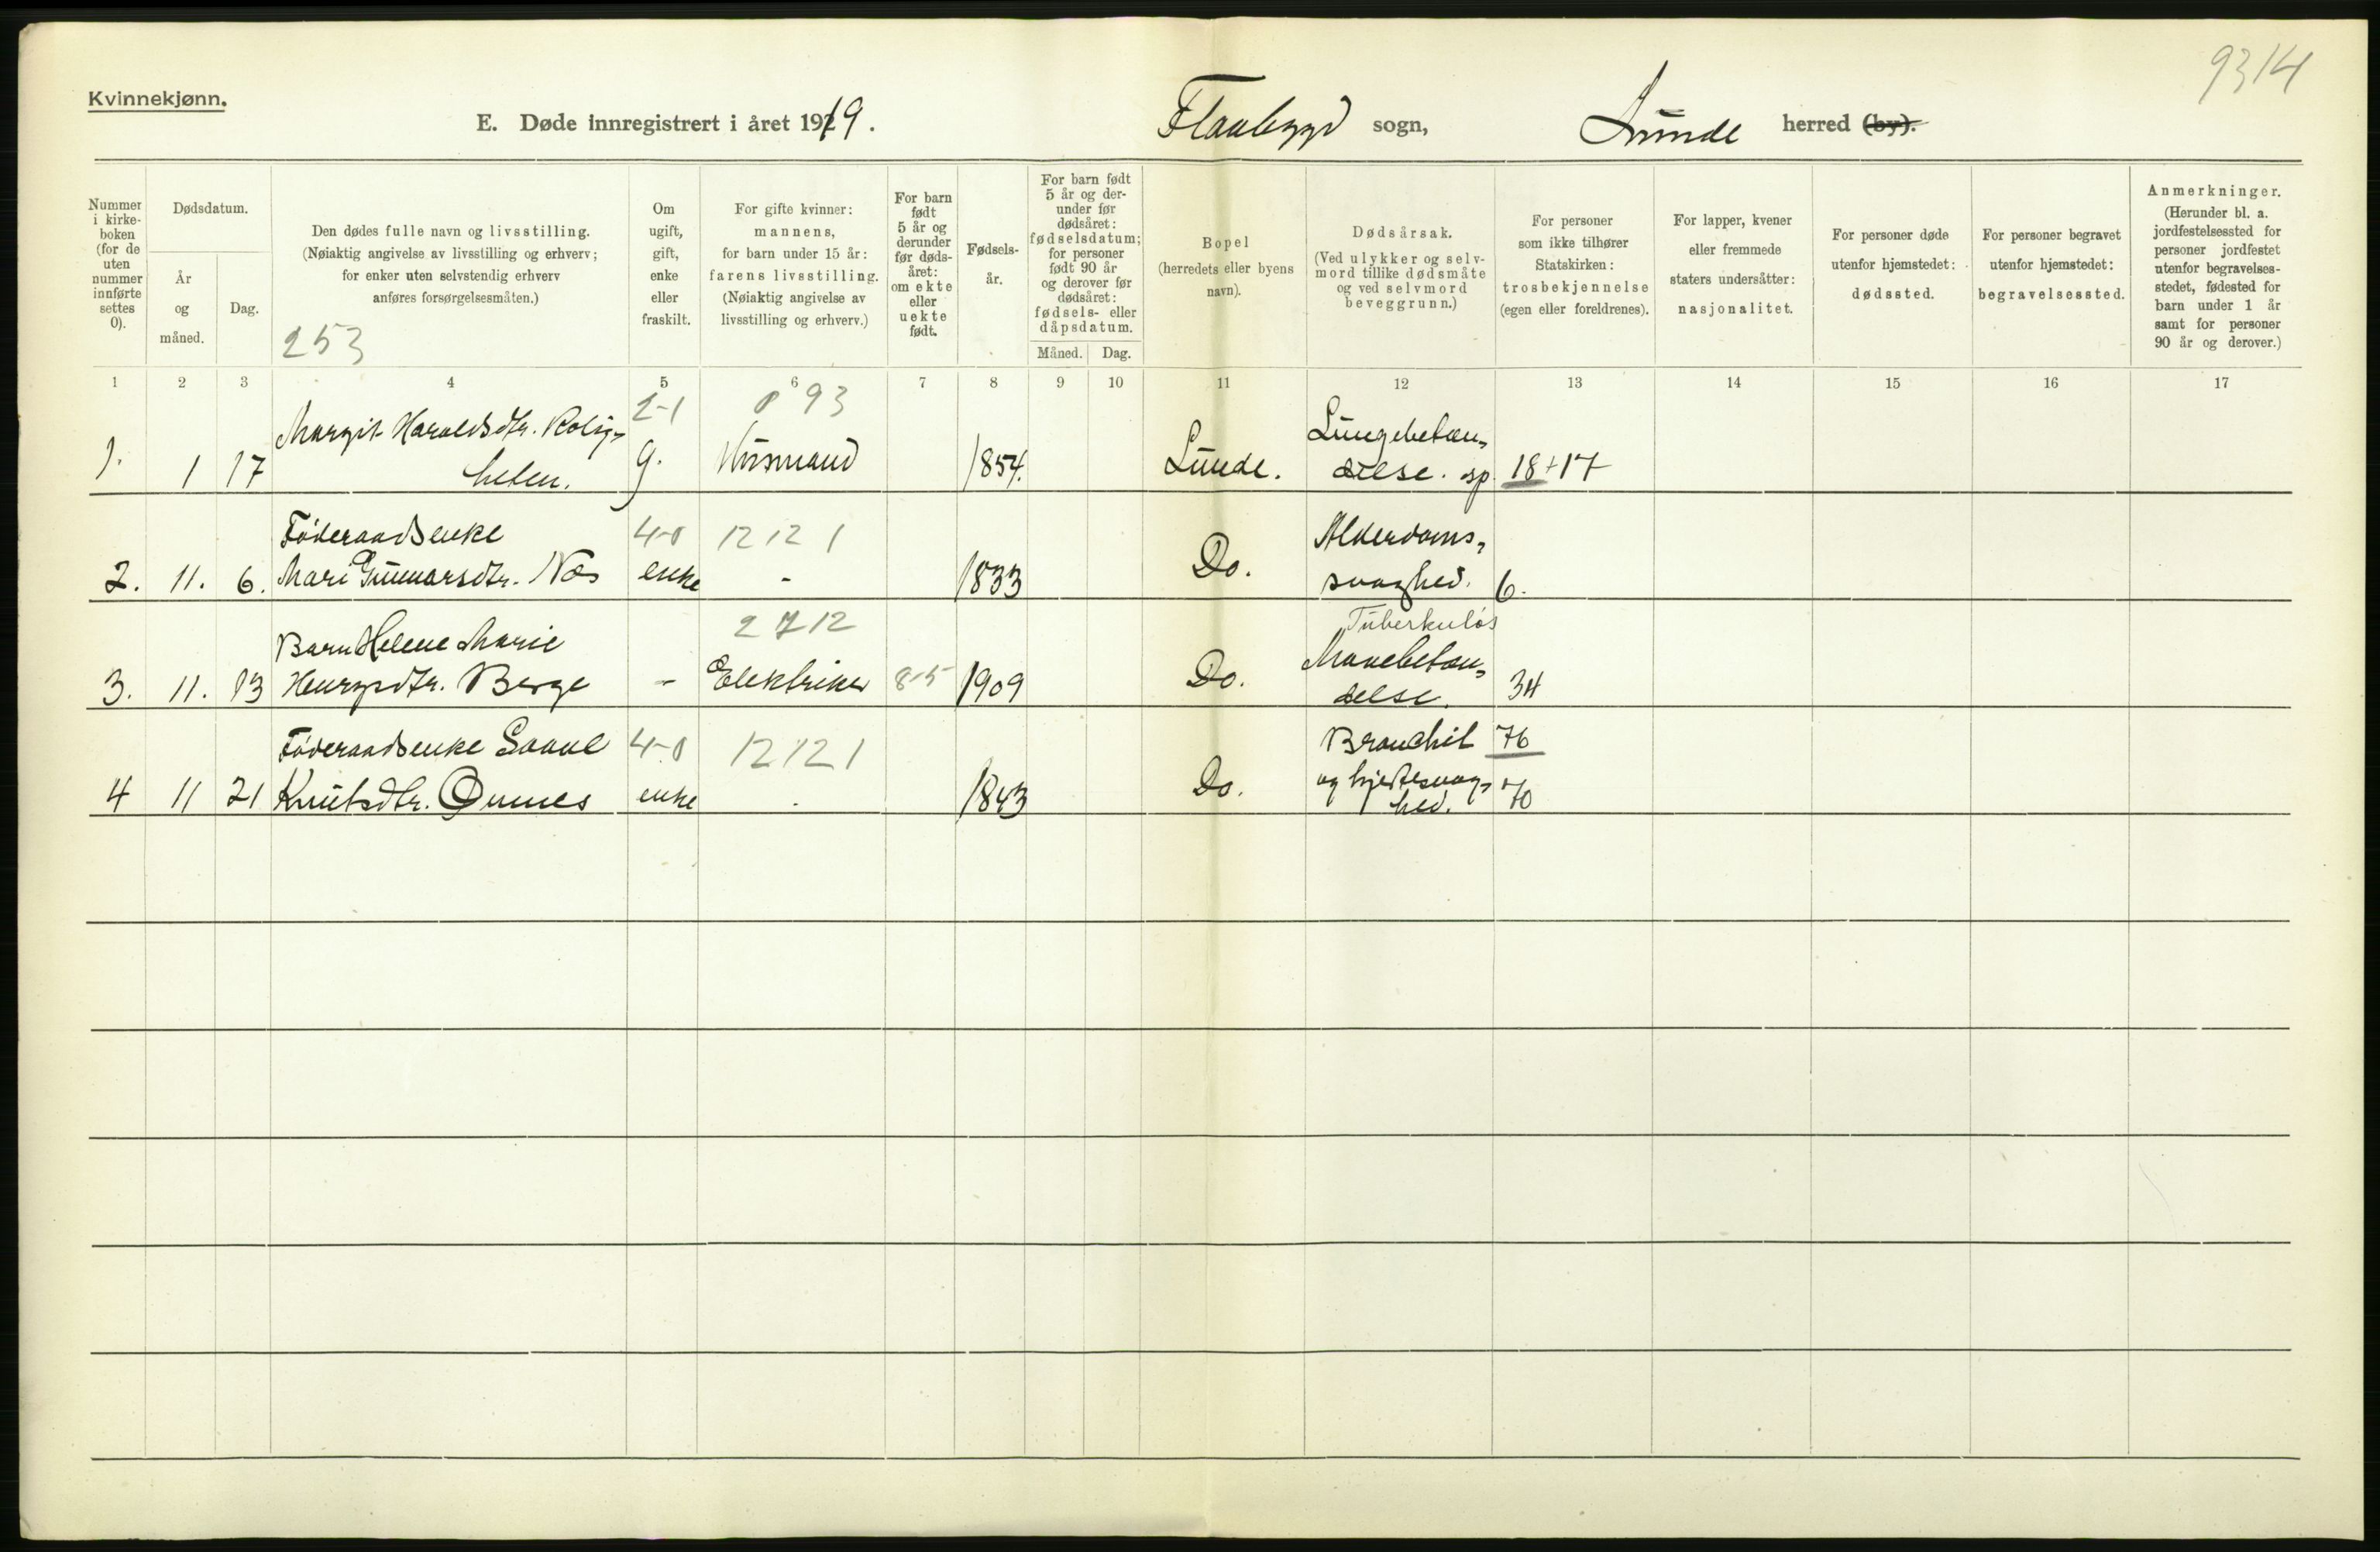 9314
Kvinnekjønn.
E. Døde innregistrert i året 1919. Flaabygd sogn, Lunde herred (by).
Nummer i kirke-boken (for de uten nummer innførte settes 0).
Dødsdatum.
År og måned.
Dag.
Den dødes fulle navn og livsstilling.
(Nøiaktig angivelse av livsstilling og erhverv;
for enker uten selvstendig erhverv
anføres forsørgelsesmåten.)
253
Om ugift, gift, enke eller fraskilt.
For gifte kvinner:
mannens,
for barn under 15 år:
farens livsstilling.
(Nøiaktig angivelse av
livsstilling og erhverv.)
For barn født 5 år og derunder før døds-året: om ekte eller uekte født.
Fødsels-år.
For barn født 5 år og der-under før dødsåret: fødselsdatum; for personer født 90 år og derover før dødsåret: fødsels- eller dåpsdatum.
Måned. Dag.
Bopel
(herredets eller byens
navn).
Dødsårsak.
(Ved ulykker og selv-
mord tillike dødsmåte
og ved selvmord
beveggrunn.)
For personer
som ikke tilhører
Statskirken:
trosbekjennelse
(egen eller foreldrenes).
For lapper, kvener
eller fremmede
staters undersåtter:
nasjonalitet.
For personer døde
utenfor hjemstedet:
dødssted.
For personer begravet
utenfor hjemstedet:
begravelsessted.
Anmerkninger.
(Herunder bl. a.
jordfestelsessted for
personer jordfestet
utenfor begravelses-
stedet, fødested for
barn under 1 år
samt for personer
90 år og derover.)
1 2 3 4 5 6 7 8 9 10 11 12 13 14 15 16 17
Margit Haraldsdtr. Bolig- 2-1 0 93 Lungebetæn-
1. 1 17 heten. g. Husmand 1854. Lunde. delse. sp. 18+17
Føderaadsenke 4-0 12 12 1 Alderdoms-
2. 11. 6. Mari Gunnarsdtr. Næs enke - 1833 Do. svaghed. 6.
2712 Tuberkuløs
Barn Helene Marie Mavebetæn-
3. 11. 13 Henrysdtr. Berge - Elektriker 8-5 1909 Do. delse. 34
Føderaadsenke 4-0 12 12 1 Bronchit 76
4 11 21 Knutsdtr. Ønnes enke . 1843 Do. og hjertesvag-hed. 70